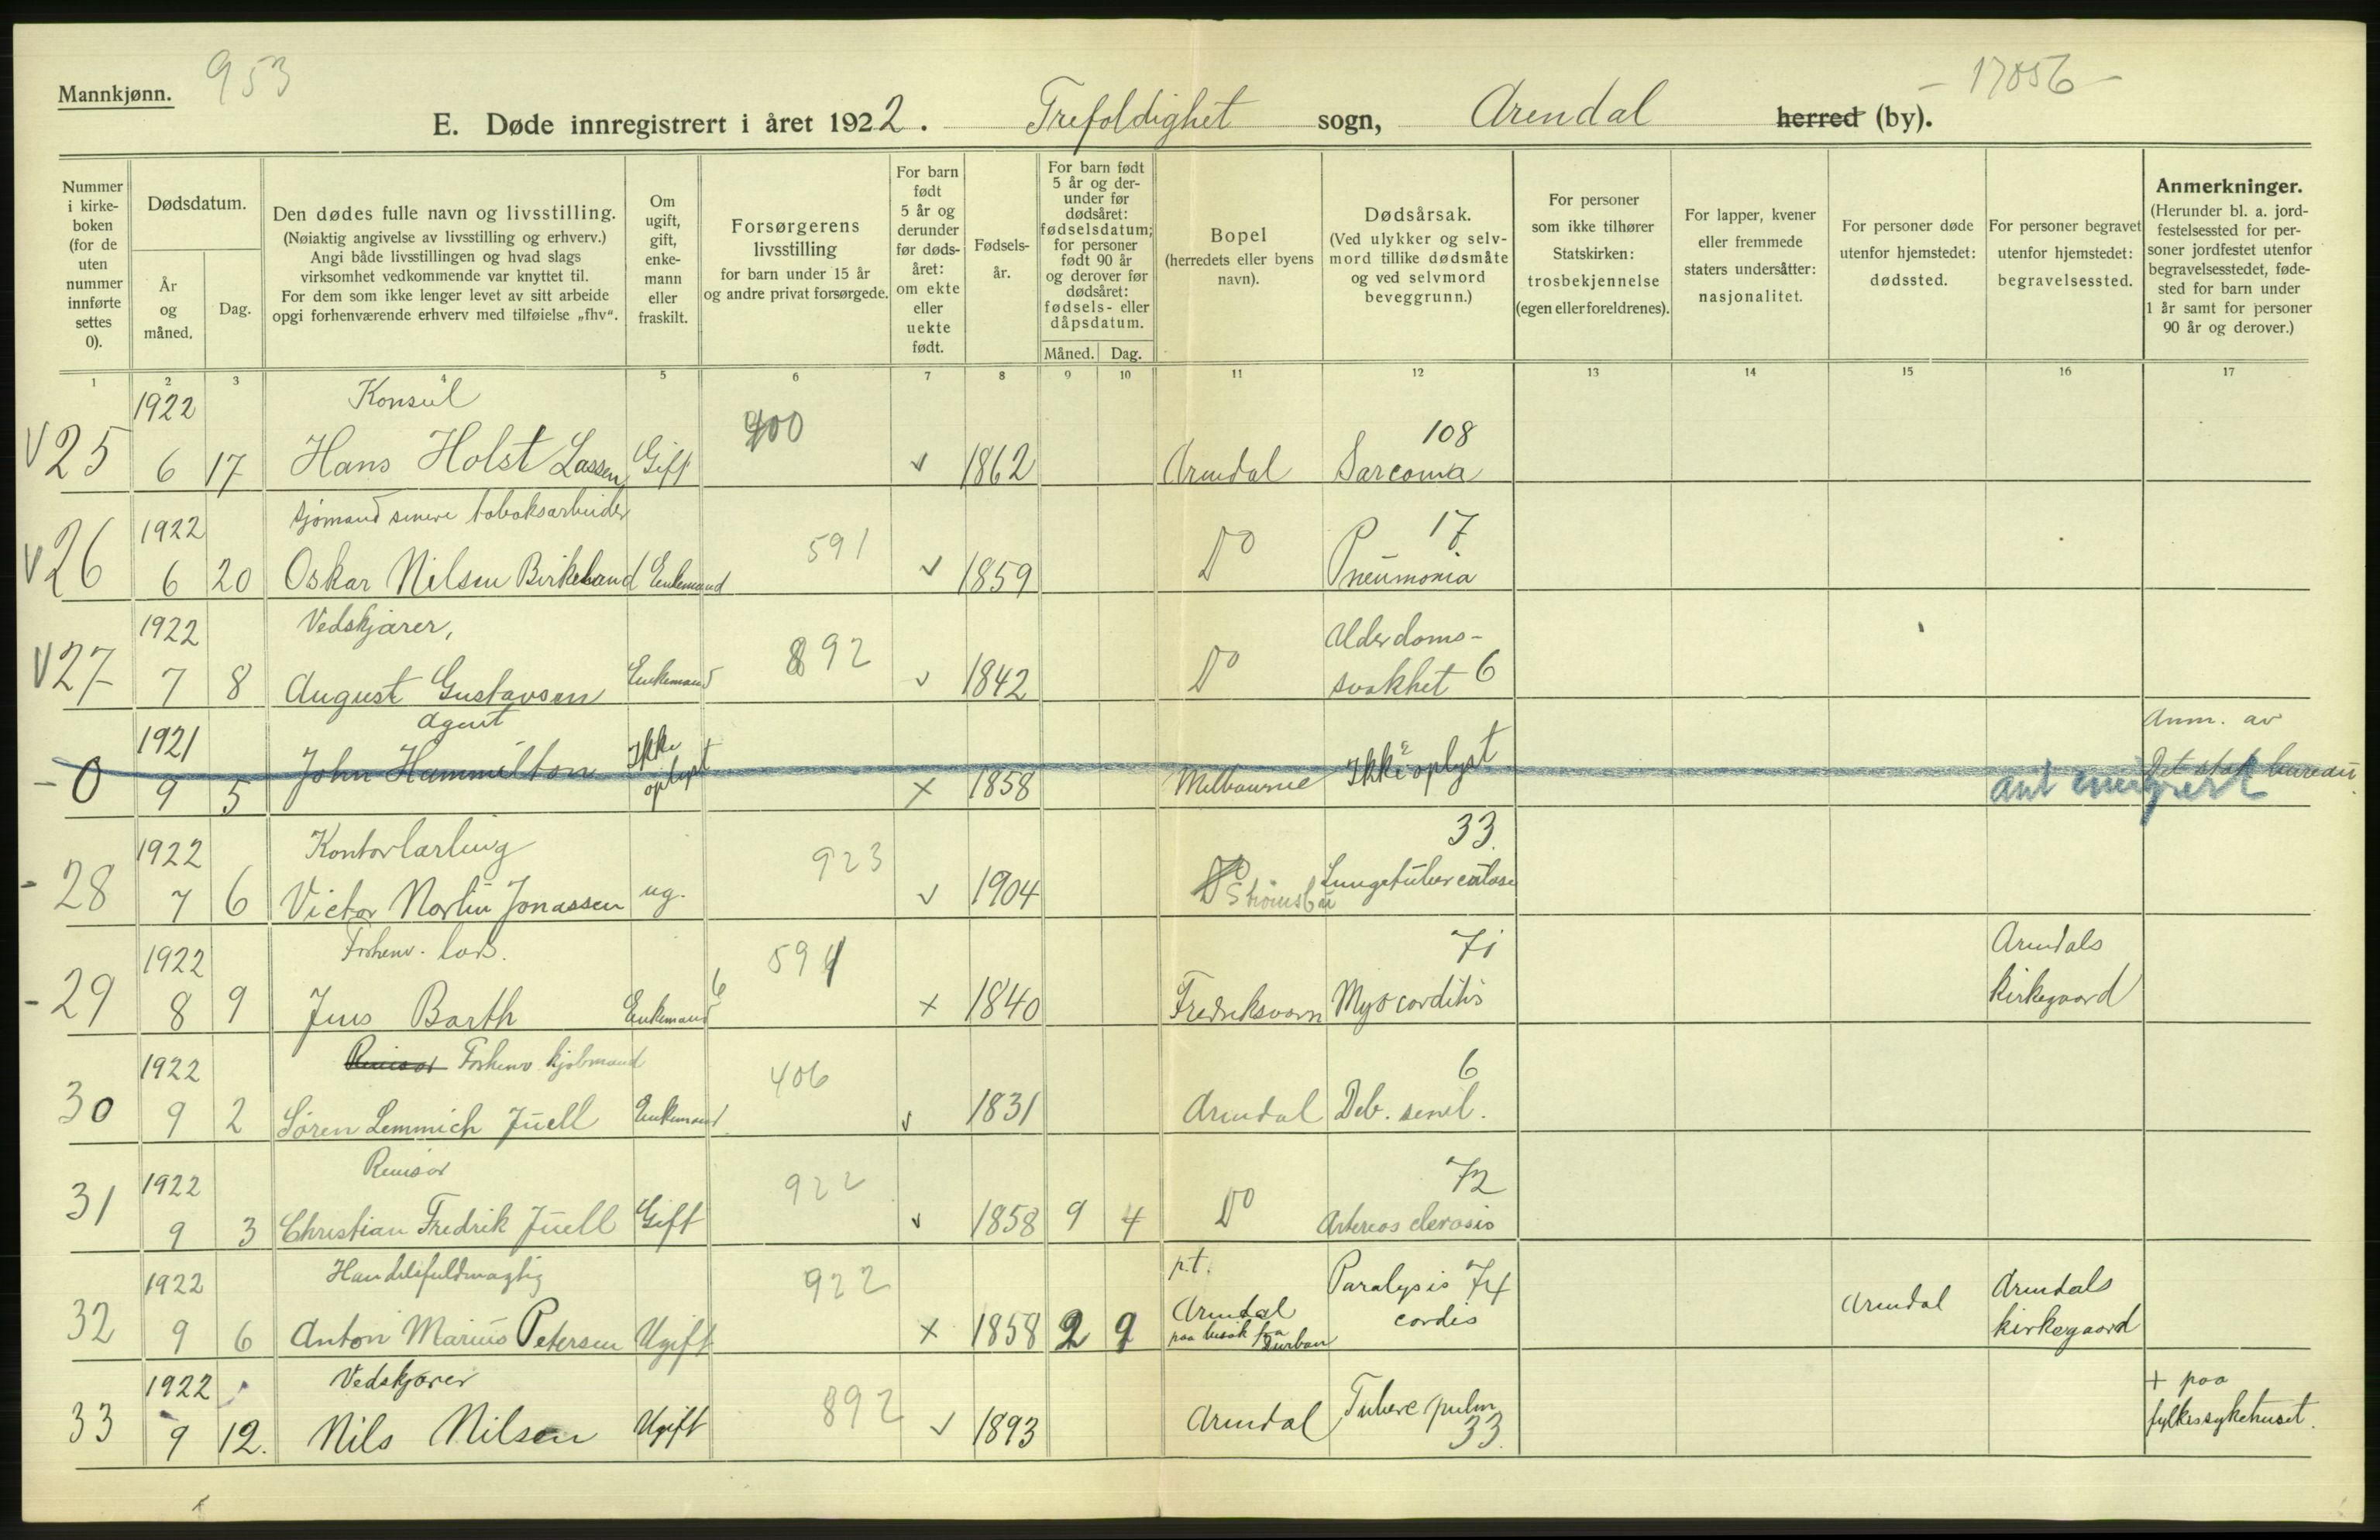 Mannkjønn. 953
E. Døde innregistrert i året 1922. Trefoldighet sogn, Arendal herred (by). – 17056 –
Nummer i kirkeboken (for de uten nummer innførte settes 0).
Dødsdatum.
År og måned.
Dag.
Den dødes fulle navn og livsstilling.
(Nøiaktig angivelse av livsstilling og erhverv.)
Angi både livsstillingen og hvad slags
virksomhet vedkommende var knyttet til.
For dem som ikke lenger levet av sitt arbeide
opgi forhenværende erhverv med tilføielse „fhv“.
Om ugift, gift, enkemann eller fraskilt.
Forsørgerens livsstilling
for barn under 15 år
og andre privat forsørgede.
For barn født 5 år og derunder før dødsåret: om ekte eller uekte født.
Fødselsår.
For barn født 5 år og derunder før dødsåret: fødselsdatum; for personer født 90 år og derover før dødsåret: fødsels- eller dåpsdatum.
Måned. Dag.
Bopel
(herredets eller byens navn).
Dødsårsak.
(Ved ulykker og selvmord tillike dødsmåte og ved selvmord beveggrunn.)
For personer som ikke tilhører Statskirken: trosbekjennelse (egen eller foreldrenes).
For lapper, kvener eller fremmede staters undersåtter: nasjonalitet.
For personer døde utenfor hjemstedet: dødssted.
For personer begravet utenfor hjemstedet: begravelsessted.
Anmerkninger.
(Herunder bl. a. jordfestelsessted for personer jordfestet utenfor begravelsesstedet, fødested for barn under 1 år samt for personer 90 år og derover.)
1 2 3 4 5 6 7 8 9 10 11 12 13 14 15 16 17
1922 Konsul 400 108
V 25 6 17 Hans Holst Lassen Gift √ 1862 Arendal Sarcoma
1922 Sjømand senere tobaksarbeider 591 17
V 26 6 20 Oskar Nilsen Birkeland Enkemand √ 1859 Do Pneumonia
1922 Vedskjærer, 892 Alderdoms-
V 27 7 8 August Gustavsen Enkemand √ 1842 Do svakhet 6
1921 Agent Ikke Anm. av
- 0 9 5 John Hammilton oplyst x 1858 Melbourne Ikke oplyst Det stat. bureau.
ant emigrert
1922 Kontorlærling 923 33.
- 28 7 6 Victor Martin Jonassen ug. √ 1904 Do Strømsbu Lungetuberculose
1922 Forhenv. los. 594 71 Arendals
- 29 8 9 Jens Barth Enkemand 6 x 1840 Fredriksvärn Myocarditis kirkegaard
1922 Revisor Forhenv kjøbmand 406 6
30 9 2 Søren Lemmich Juell Enkemand √ 1831 Arendal Deb. senil.
1922 Revisor 922 72
31 9 3 Christian Fredrik Juell Gift √ 1858 9 4 Do Arteriosclerosis
1922 Handelsfuldmægtig 922 p.t. Paralysis 74 Arendals
32 9 6 Anton Marius Petersen Ugift x 1858 2 9 Arendal cordis Arendal kirkegaard
paa besøk fra Durban
1922 Vedskjærer 892 + paa
33 9 12. Nils Nilsen Ugift √ 1893 Arendal Tuberc pulm 33. fylkessykehuset.